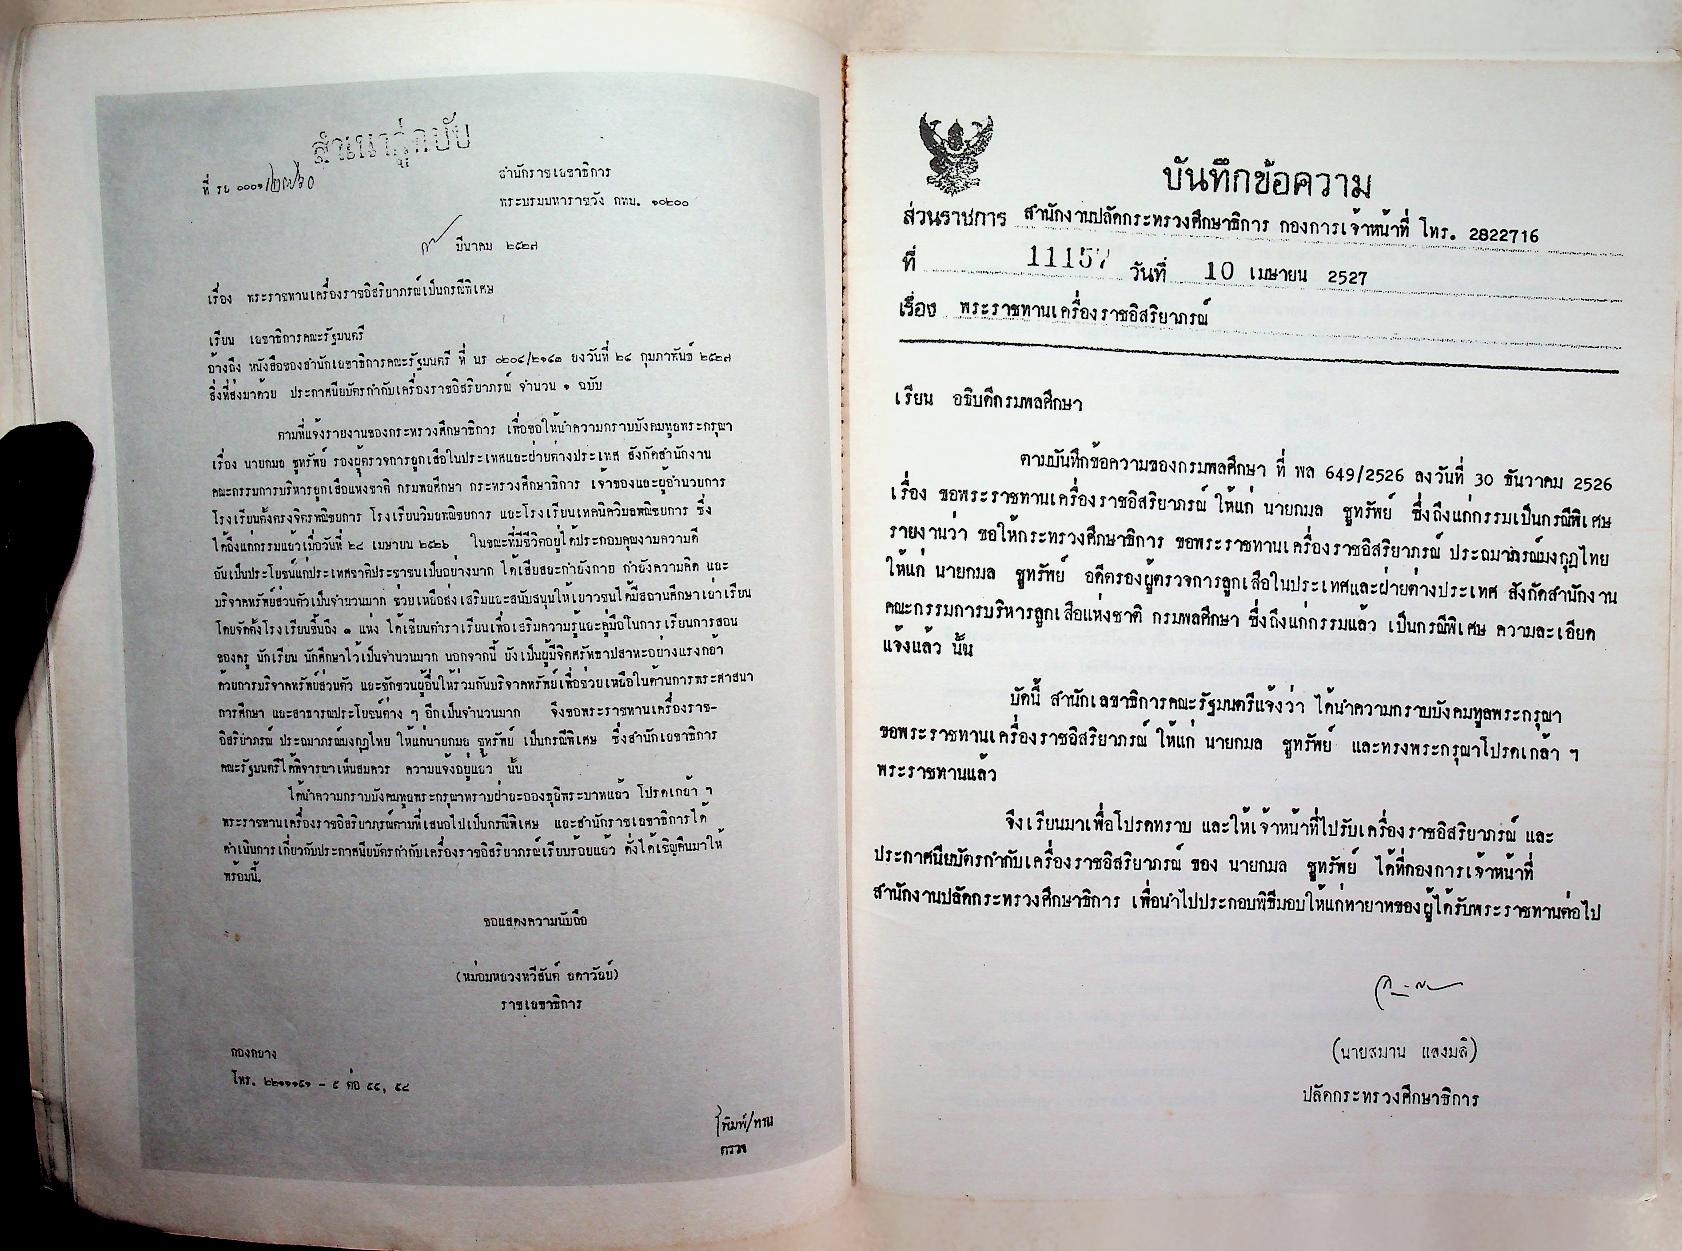 สำเนาคู่ฉบับ
ที่ รล ๐๐๐๑/
สำนักราชเลขาธิการ
พระบรมมหาราชวัง กทม. ๑๐๒๐๐
มีนาคม ๒๕๒๗
เรื่อง พระราชทานเครื่องราชอิสริยาภรณ์เป็นกรณีพิเศษ
เรียน เลขาธิการคณะรัฐมนตรี
อ้างถึง หนังสือของสำนักเลขาธิการคณะรัฐมนตรี ที่ นร ๐๒๐๔/๒๑๔๓ ลงวันที่ ๒๔ กุมภาพันธ์ ๒๕๒๗
สิ่งที่ส่งมาด้วย ประกาศนียบัตรกำกับเครื่องราชอิสริยาภรณ์ จำนวน ๑ ฉบับ
ตามที่แจ้งรายงานของกระทรวงศึกษาธิการ เพื่อขอให้นำความกราบบังคมทูลพระกรุณา
เรื่อง นายกมล ชูทรัพย์ รองผู้ตรวจการลูกเสือในประเทศและฝ่ายต่างประเทศ สังกัดสำนักงาน
คณะกรรมการบริหารลูกเสือแห่งชาติ กรมพลศึกษา กระทรวงศึกษาธิการ เจ้าของและผู้อำนวยการ
โรงเรียนตั้งตรงจิตรพณิชยการ โรงเรียนวิมลพณิชยการ และโรงเรียนเทคนิควิมลพณิชยการ ซึ่ง
ได้ถึงแก่กรรมแล้วเมื่อวันที่ ๒๔ เมษายน ๒๕๒๖ ในขณะที่มีชีวิตอยู่ได้ประกอบคุณงามความดี
อันเป็นประโยชน์แก่ประเทศชาติประชาชนเป็นอย่างมาก ได้เสียสละกำลังกาย กำลังความคิด และ
บริจาคทรัพย์ส่วนตัวเป็นจำนวนมาก ช่วยเหลือส่งเสริมและสนับสนุนให้เยาวชนได้มีสถานศึกษาเล่าเรียน
โดยจัดตั้งโรงเรียนขึ้นถึง ๓ แห่ง ได้เขียนตำราเรียนเพื่อเสริมความรู้และคู่มือในการเรียนการสอน
ของครู นักเรียน นักศึกษาไว้เป็นจำนวนมาก นอกจากนี้ ยังเป็นผู้มีจิตศรัทธาปสาทะอย่างแรงกล้า
ด้วยการบริจาคทรัพย์ส่วนตัว และชักชวนผู้อื่นให้ร่วมกันบริจาคทรัพย์เพื่อช่วยเหลือในด้านการพระศาสนา
การศึกษา และสาธารณประโยชน์ต่าง ๆ อีกเป็นจำนวนมาก จึงขอพระราชทานเครื่องราช-
อิสริยาภรณ์ ประถมาภรณ์มงกุฎไทย ให้แก่นายกมล ชูทรัพย์ เป็นกรณีพิเศษ ซึ่งสำนักเลขาธิการ
คณะรัฐมนตรีได้พิจารณาเห็นสมควร ความแจ้งอยู่แล้ว นั้น
ได้นำความกราบบังคมทูลพระกรุณาทราบฝ่าละอองธุลีพระบาทแล้ว โปรดเกล้า ฯ
พระราชทานเครื่องราชอิสริยาภรณ์ตามที่เสนอไปเป็นกรณีพิเศษ และสำนักราชเลขาธิการได้
ดำเนินการเกี่ยวกับประกาศนียบัตรกำกับเครื่องราชอิสริยาภรณ์เรียบร้อยแล้ว ดังได้เชิญคืนมาให้
พร้อมนี้.
ขอแสดงความนับถือ
(หม่อมหลวงทวีสันต์ ลดาวัลย์)
ราชเลขาธิการ
กองกลาง
โทร. ๒๒๑๑๑๕๑ - ๕ ต่อ ๕๔, ๕๘
พิมพ์/ทาน
ตรวจ
บันทึกข้อความ
ส่วนราชการ สำนักงานปลัดกระทรวงศึกษาธิการ กองการเจ้าหน้าที่ โทร. 2822716
ที่ 11157 วันที่ 10 เมษายน 2527
เรื่อง พระราชทานเครื่องราชอิสริยาภรณ์
เรียน อธิบดีกรมพลศึกษา
ตามบันทึกข้อความของกรมพลศึกษา ที่ พล 649/2526 ลงวันที่ 30 ธันวาคม 2526
เรื่อง ขอพระราชทานเครื่องราชอิสริยาภรณ์ ให้แก่ นายกมล ชูทรัพย์ ซึ่งถึงแก่กรรมเป็นกรณีพิเศษ
รายงานว่า ขอให้กระทรวงศึกษาธิการ ขอพระราชทานเครื่องราชอิสริยาภรณ์ ประถมาภรณ์มงกุฎไทย
ให้แก่ นายกมล ชูทรัพย์ อดีตรองผู้ตรวจการลูกเสือในประเทศและฝ่ายต่างประเทศ สังกัดสำนักงาน
คณะกรรมการบริหารลูกเสือแห่งชาติ กรมพลศึกษา ซึ่งถึงแก่กรรมแล้ว เป็นกรณีพิเศษ ความละเอียด
แจ้งแล้ว นั้น
บัดนี้ สำนักเลขาธิการคณะรัฐมนตรีแจ้งว่า ได้นำความกราบบังคมทูลพระกรุณา
ขอพระราชทานเครื่องราชอิสริยาภรณ์ ให้แก่ นายกมล ชูทรัพย์ และทรงพระกรุณาโปรดเกล้า ฯ
พระราชทานแล้ว
จึงเรียนมาเพื่อโปรดทราบ และให้เจ้าหน้าที่ไปรับเครื่องราชอิสริยาภรณ์ และ
ประกาศนียบัตรกำกับเครื่องราชอิสริยาภรณ์ ของ นายกมล ชูทรัพย์ ได้ที่กองการเจ้าหน้าที่
สำนักงานปลัดกระทรวงศึกษาธิการ เพื่อนำไปประกอบพิธีมอบให้แก่ทายาทของผู้ได้รับพระราชทานต่อไป
(นายสมาน แสงมลิ)
ปลัดกระทรวงศึกษาธิการ